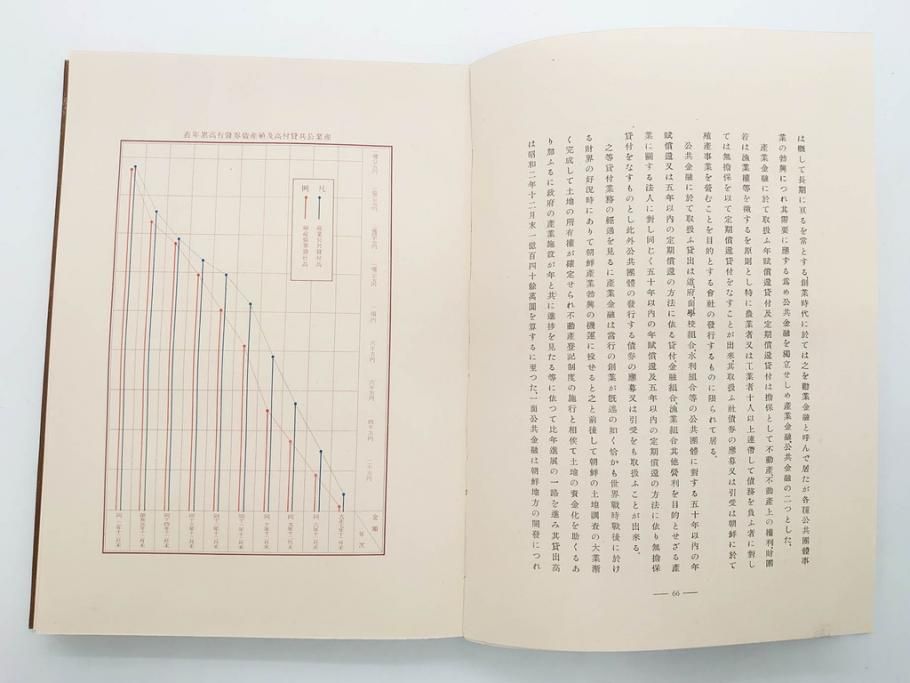 は概して長期に亙るを常とする、創業時代に於ては之を勸業金融と呼んで居たが各種公共團體事
業の勃興につれ其需要に應ずる爲め公共金融を獨立せしめ產業金融、公共金融の二つとした、
產業金融に於て取扱ふ年賦償還貸付及定期償還貸付は擔保として不動產、不動產上の權利、財團
若は漁業權等を徵するを原則とし特に農業者又は工業者十人以上連帶して債務を負ふ者に對し
ては無擔保を以て定期償還貸付をなすことが出來、其取扱ふ社債券の應募又は引受は朝鮮に於て
殖產事業を營むことを目的とする會社の發行するものに限られて居る。
公共金融に於て取扱ふ貸出は道、府、面、學校組合、水利組合等の公共團體に對する五十年以內の年
賦償還又は五年以內の定期償還の方法に依る貸付、金融組合、漁業組合其他營利を目的とせざる產
業に關する法人に對し同じく五十年以內の年賦償還及五年以內の定期償還の方法に依り無擔保
貸付をなすものとし此外公共團體の發行する債券の應募又は引受をも取扱ふことが出來る。
之等貸付業務の經過を見るに產業金融は當行の創業が旣述の如く恰かも世界戰時戰後に於け
る財界の好況時にありて朝鮮產業勃興の機運に投せると之と前後して朝鮮の土地調查の大業漸
く完成して土地の所有權が確定せられ不動產登記制度の施行と相俟て土地の資金化を助くるあ
り加ふるに政府の產業施設が年と共に進捗を見たる等に依つて比年進展の一路を進み其貸出高
は昭和二年十二月末一億百四十餘萬圓を算するに至つた、一面公共金融は朝鮮地方の開發につれ
— 66 —
產業公共貸付高及殖產債券發行高累年表
凡例
產業公共貸付高
金額
年次
二千万円
四千万円
六千万円
八千万円
一億円
大正七年十二月末
同 八年十二月末
同 九年十二月末
同 十年十二月末
同 十一年十二月末
同 十二年十二月末
同 十三年十二月末
同 十四年十二月末
昭和元年十二月末
同 二年十二月末